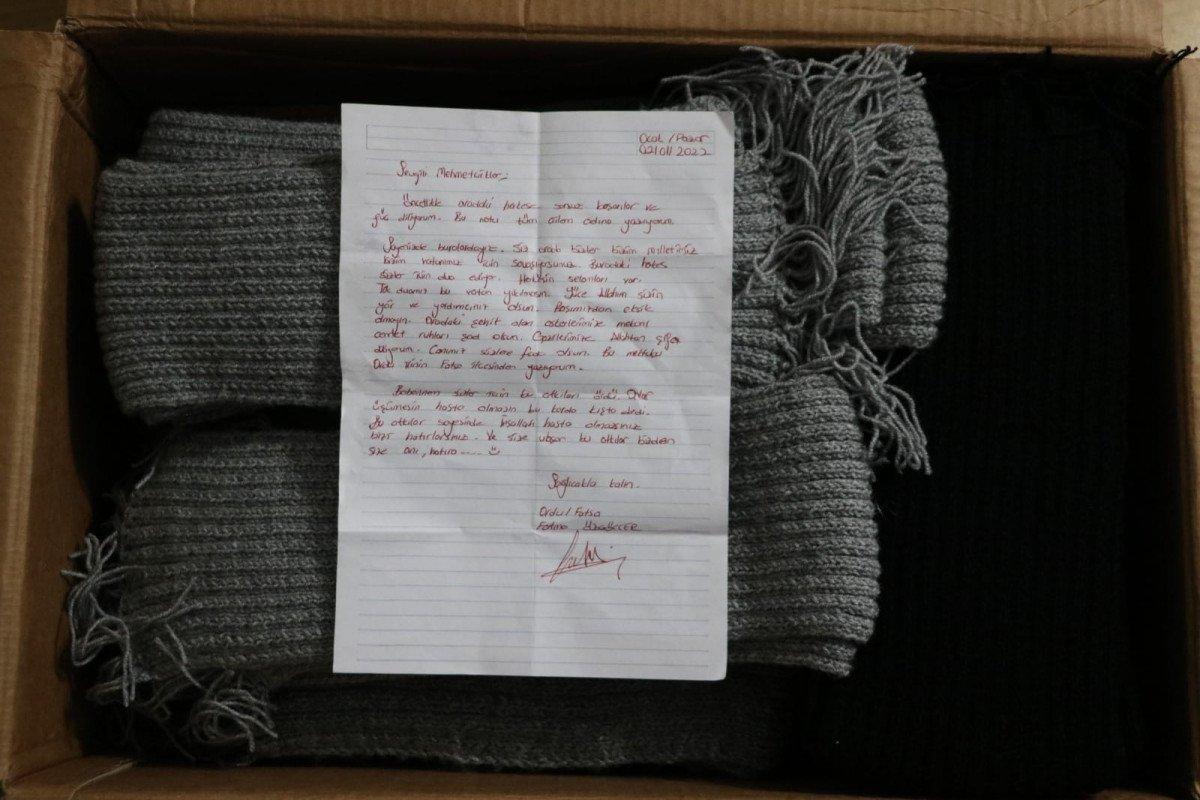 Ocak / Pazar
02/01/2022
Sevgili Mehmetcikler;
Öncelikle oradaki herkese sonsuz başarılar ve
güç diliyorum. Bu notu tüm ailem adına yazıyorum.
Sayenizde buralardayız. Siz orada bizler bizim milletimiz
bizim vatanımız için savaşıyosunuz. Buradaki herkes
sizler için dua ediyor. Herkesin selamları var.
Tek duamız bu vatan yıkılmasın. Yüce Allahım sizin
yar ve yardımcınız olsun. Başımızdan eksik
olmayın. Oradaki şehit olan askerlerimize mekanı
cennet ruhları şad olsun. Gazilerimize Allahtan şifa
diliyorum. Canımız sizlere feda olsun. Bu mektubu
Ordu ilinin Fatsa ilçesinden yazıyorum.
Babaannem sizler için bu atkıları ördü. Onlar
üşümesin hasta olmasın bu karda kışta dedi.
Bu atkılar sayesinde inşallah hasta olmazsınız
bizi hatırlarsınız. Ve size ulaşan bu atkılar bizden
size anı, hatıra.....
Sağlıcakla kalın.
Ordu / Fatsa
Fatma